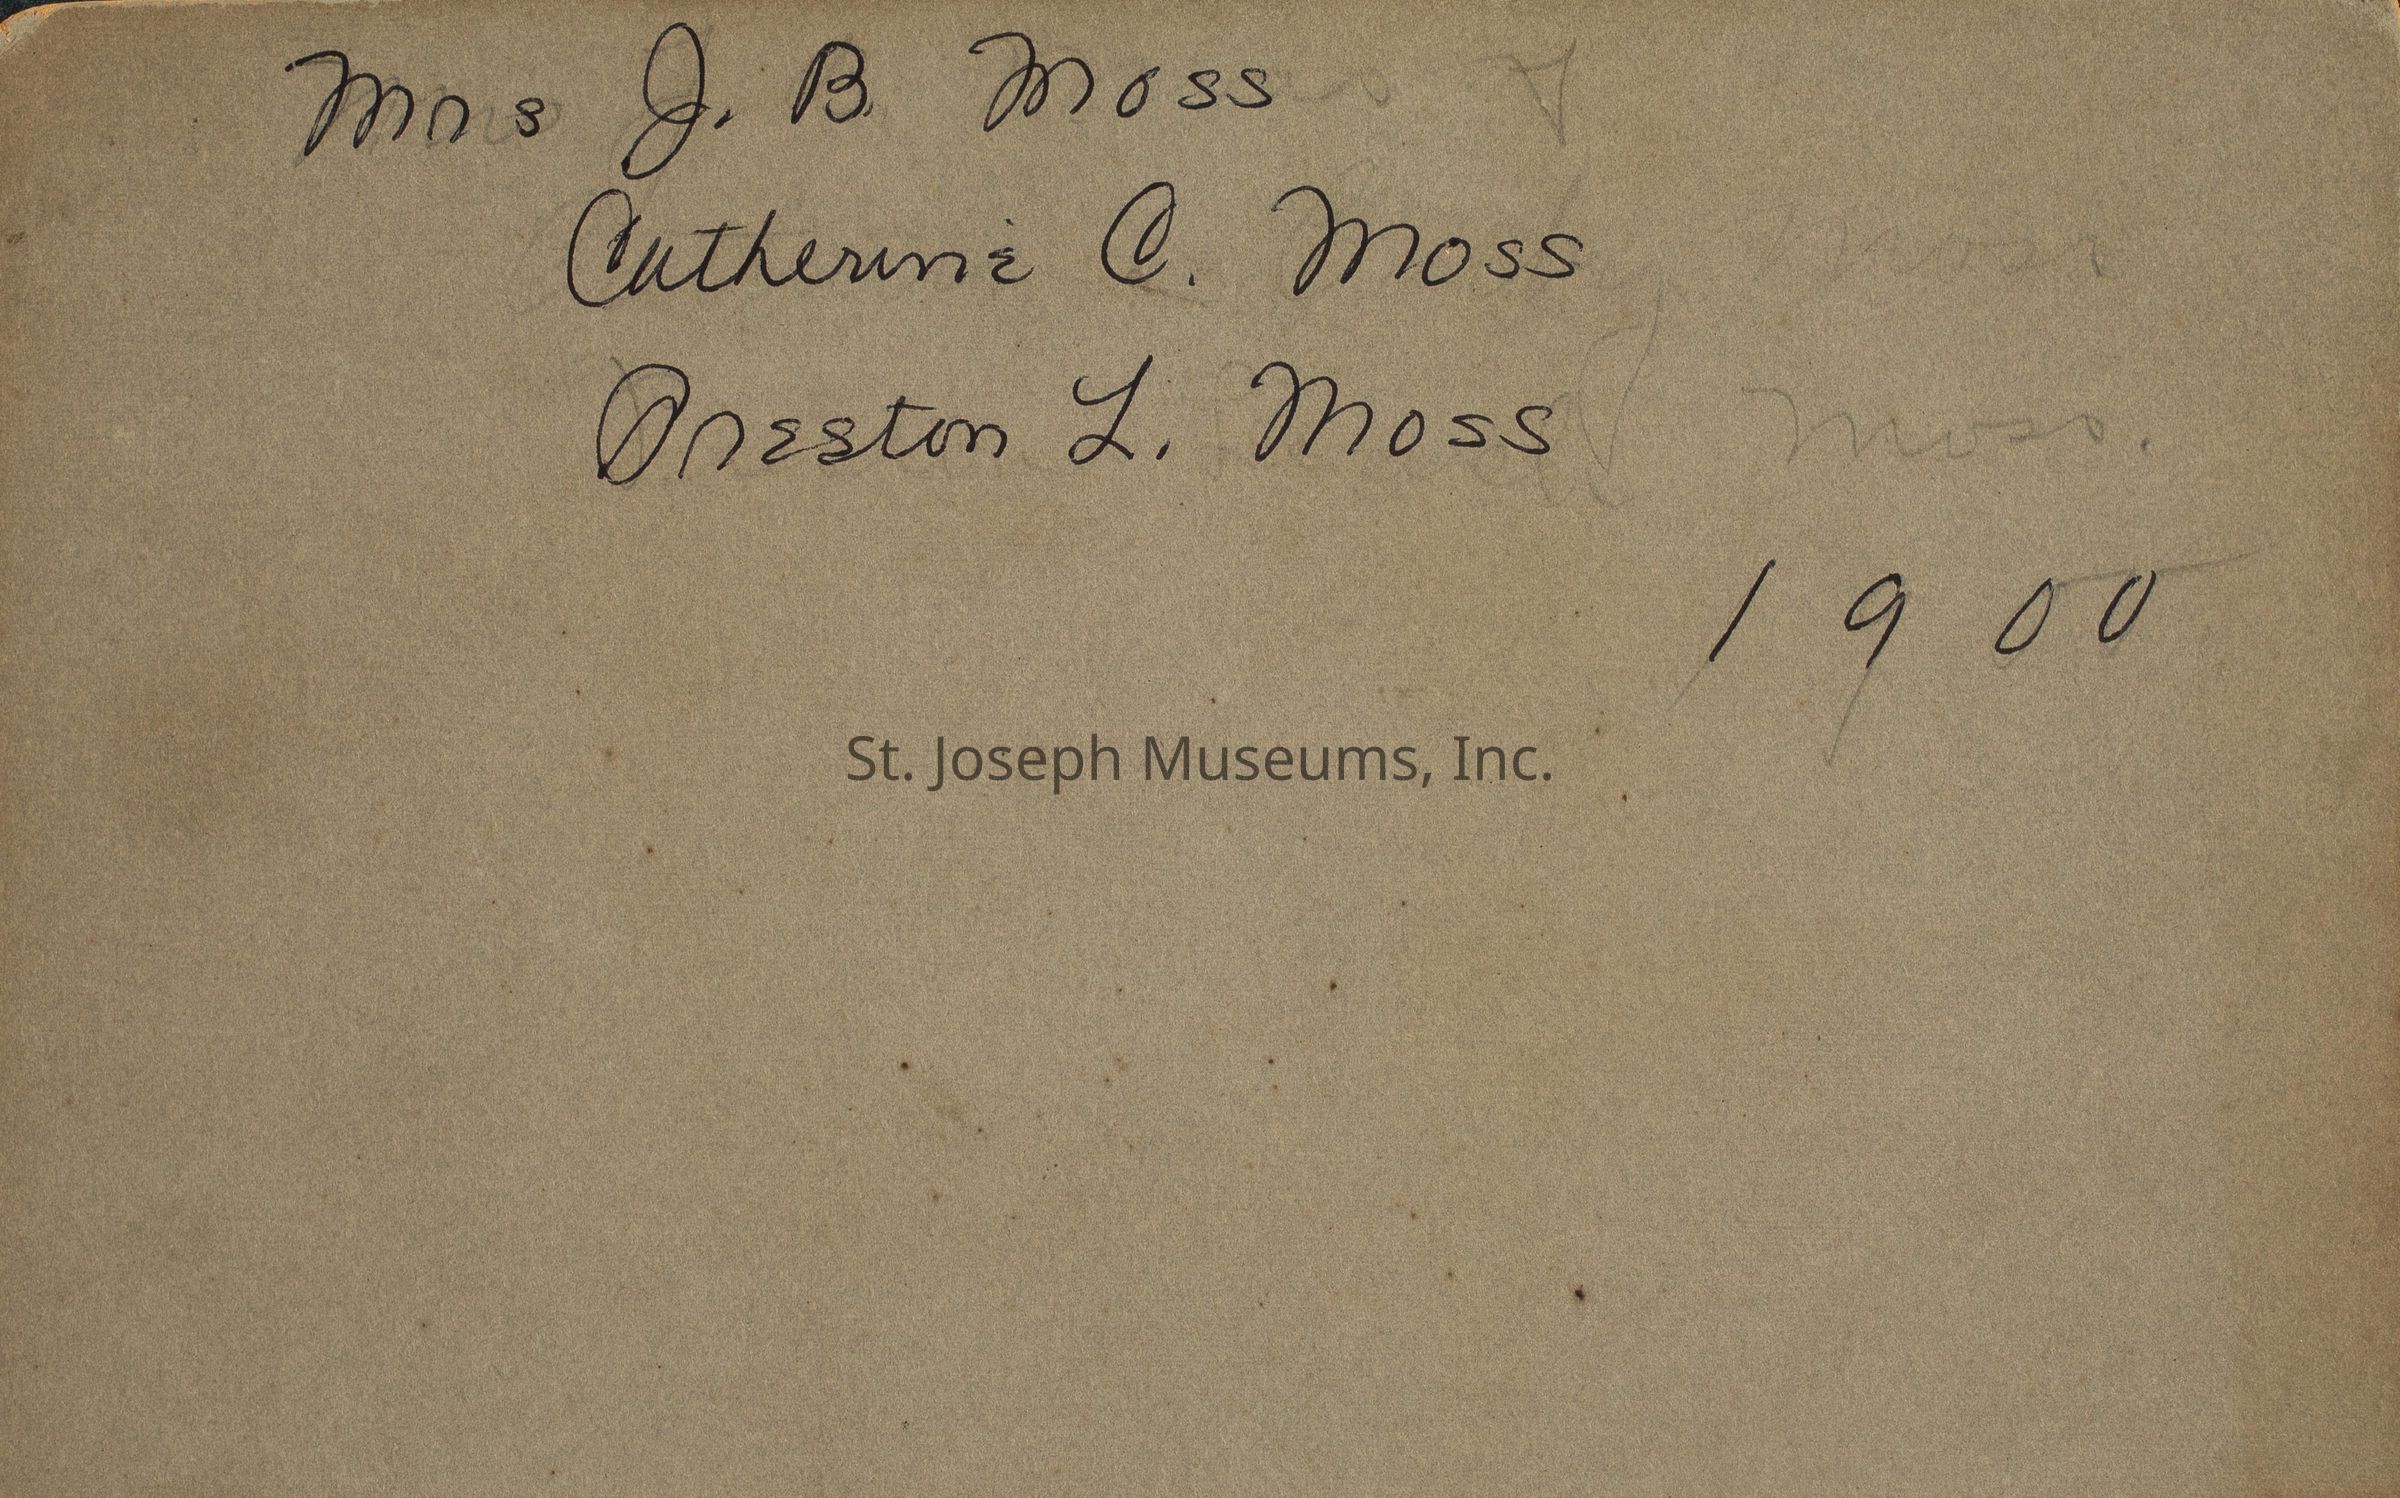 Mrs J. B. Moss
Catherine C. Moss
Preston L. Moss
Moss.
1900
St. Joseph Museums, Inc.